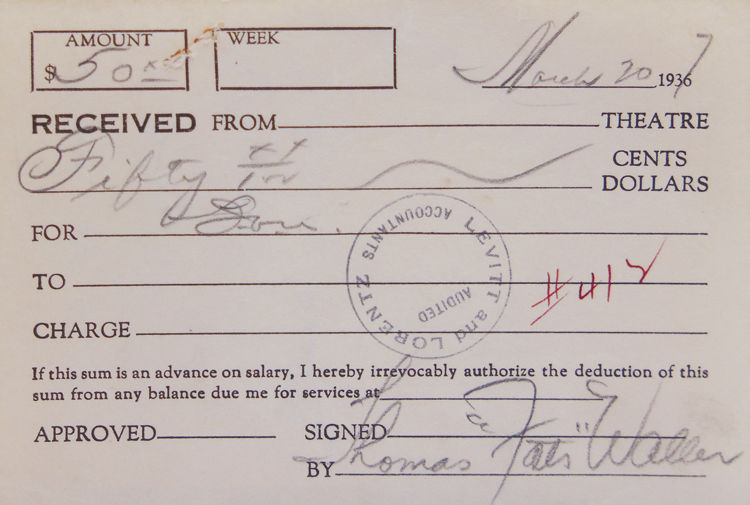 AMOUNT WEEK
$ 50 xx March 20 1936 7
RECEIVED FROM THEATRE
Fifty xx/100 CENTS DOLLARS
FOR
TO #412
CHARGE
LEVITT and LORENTZ
ACCOUNTANTS
AUDITED
If this sum is an advance on salary, I hereby irrevocably authorize the deduction of this
sum from any balance due me for services at
APPROVED SIGNED
BY Thomas "Fats" Waller